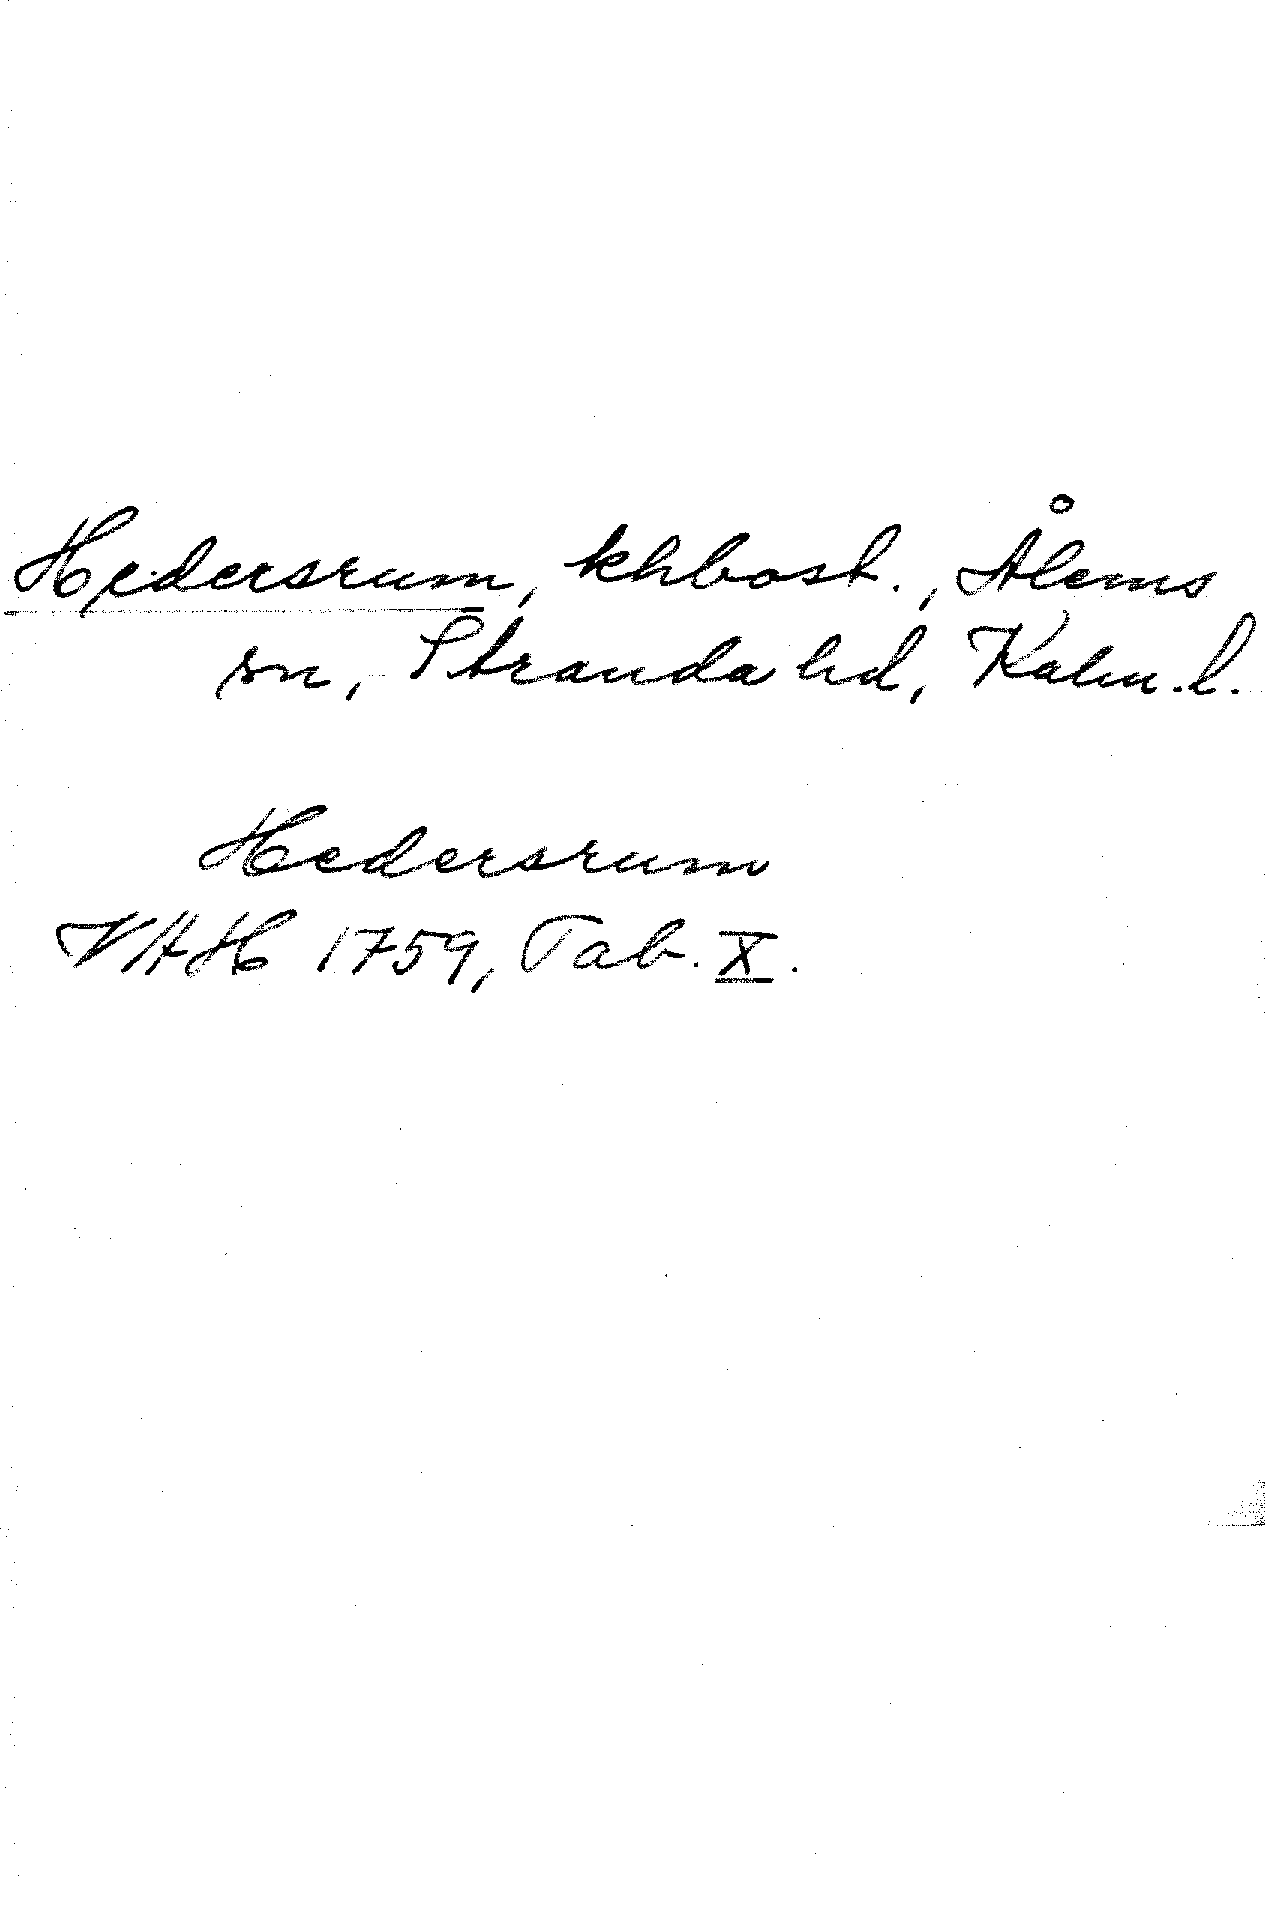 Hedersrum, khbost., Ålems
sn, Stranda hd, Kalm. l.
Hedersrum
VAH 1759, Tab. X.